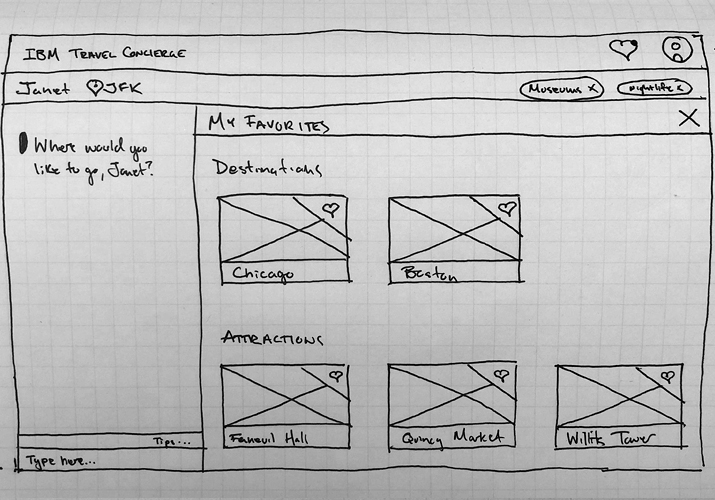 IBM TRAVEL CONCIERGE
Janet JFK
Museums x
Nightlife x
MY FAVORITES
X
Where would you
like to go, Janet?
Destinations
Chicago
Boston
ATTRACTIONS
Faneuil Hall
Quincy Market
Willits Tower
Tips...
Type here...